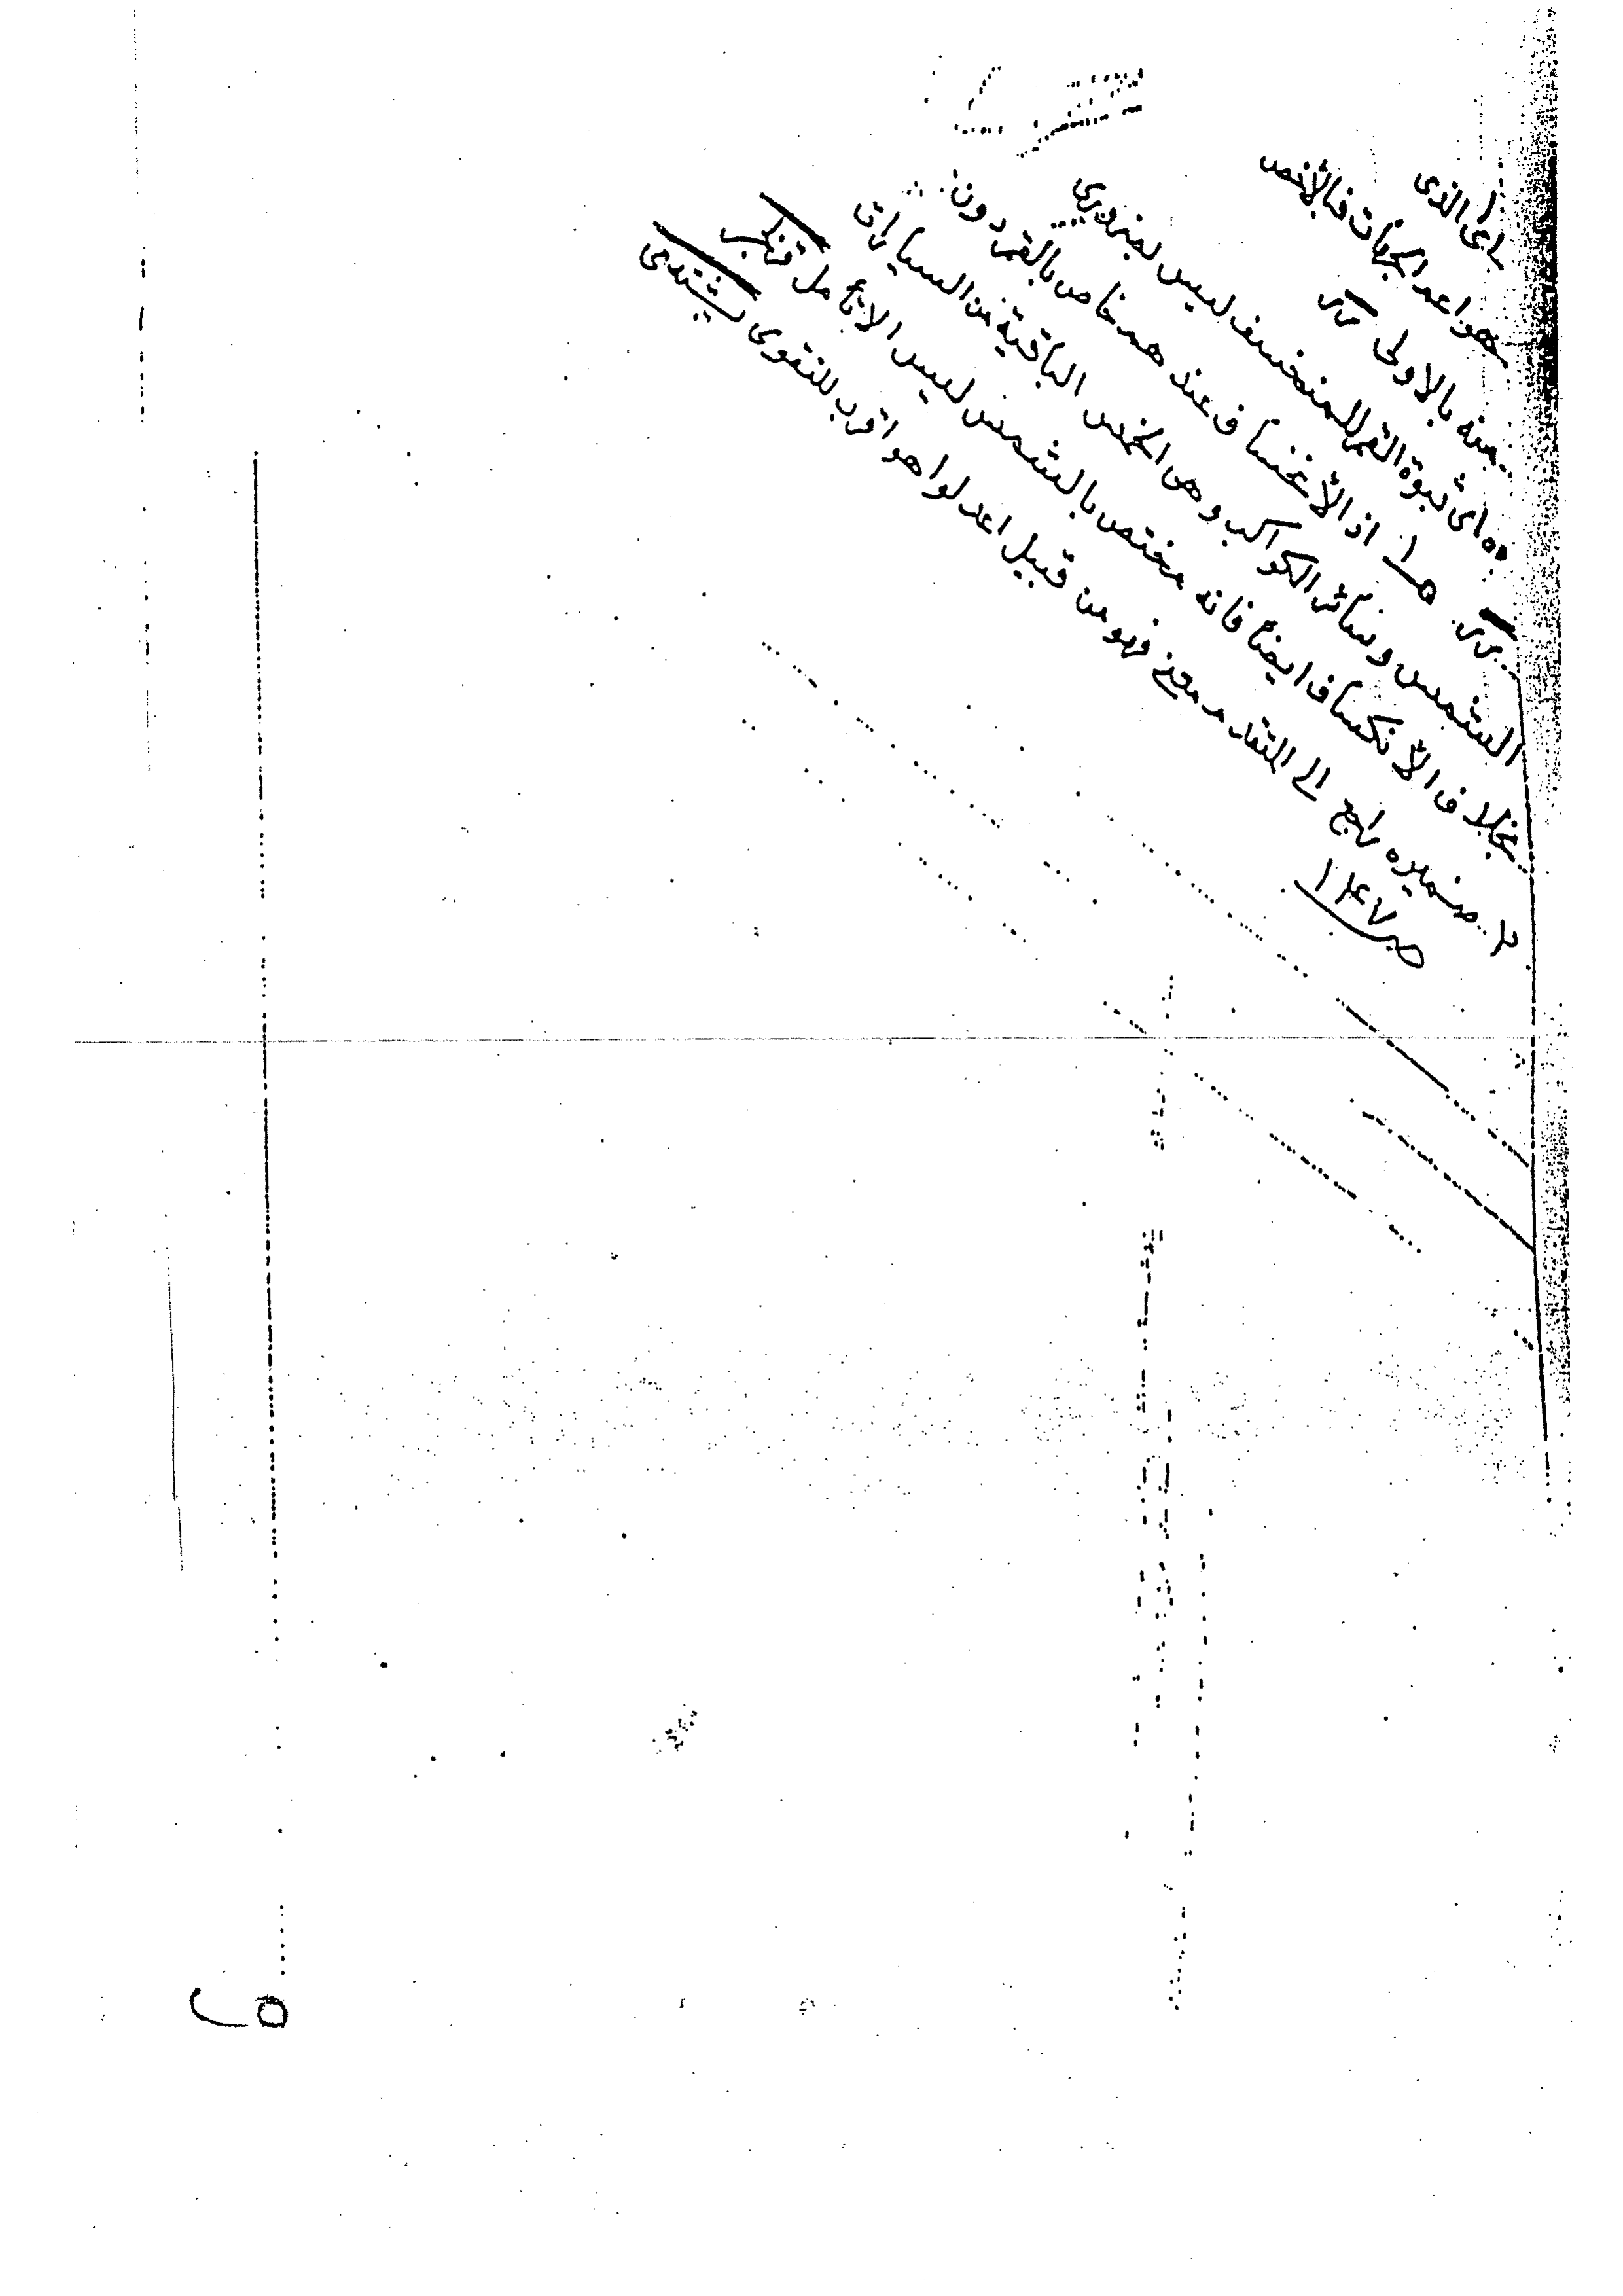 ا اى الذى
هو اعد الجهات فالأخص
منه بالاولى
ه اى ثبوة القمر للمنخسف ليس بضروري
ها اذ الأنخساف عند هم خاص بالقمر دون
الشمس وسائر الكواكب وهى الخمس الباقية من السيارات
بخلاف الأنكساف ايضاً فانه مختص بالشمس ليس الا تأمل
ضميره راجع الى المتقدم معنى فهو من قبيل اعدلوا هو اقرب للتقوى
صـ ١٤٧